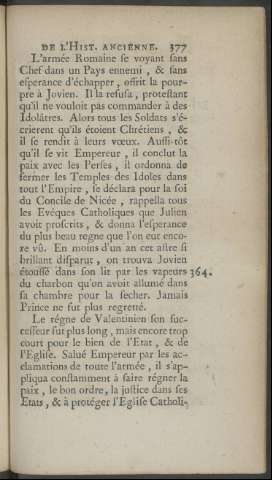 DE L'HIST. ANCIENNE. 377
L'armée Romaine se voyant sans
Chef dans un Pays ennemi, & sans
esperance d'échapper, offrit la pour-
pre à Jovien. Il la refusa, protestant
qu'il ne vouloit pas commander à des
Idolâtres. Alors tous les Soldats s'é-
crierent qu'ils étoient Chrétiens, &
il se rendit à leurs vœux. Aussi-tôt
qu'il se vit Empereur, il conclut la
paix avec les Perses, il ordonna de
fermer les Temples des Idoles dans
tout l'Empire, se déclara pour la foi
du Concile de Nicée, rappella tous
les Evéques Catholiques que Julien
avoit proscrits, & donna l'esperance
du plus beau regne que l'on eut enco-
re vû. En moins d'un an cet astre si
brillant disparut, on trouva Jovien
étouffé dans son lit par les vapeurs 364.
du charbon qu'on avoit allumé dans
sa chambre pour la secher. Jamais
Prince ne fut plus regretté.
Le régne de Valentinien son suc-
cesseur fut plus long, mais encore trop
court pour le bien de l'Etat, & de
l'Eglise. Salué Empereur par les ac-
clamations de toute l'armée, il s'ap-
pliqua constamment à faire régner la
paix, le bon ordre, la justice dans ses
Etats, & à protéger l'Eglise Catholi-